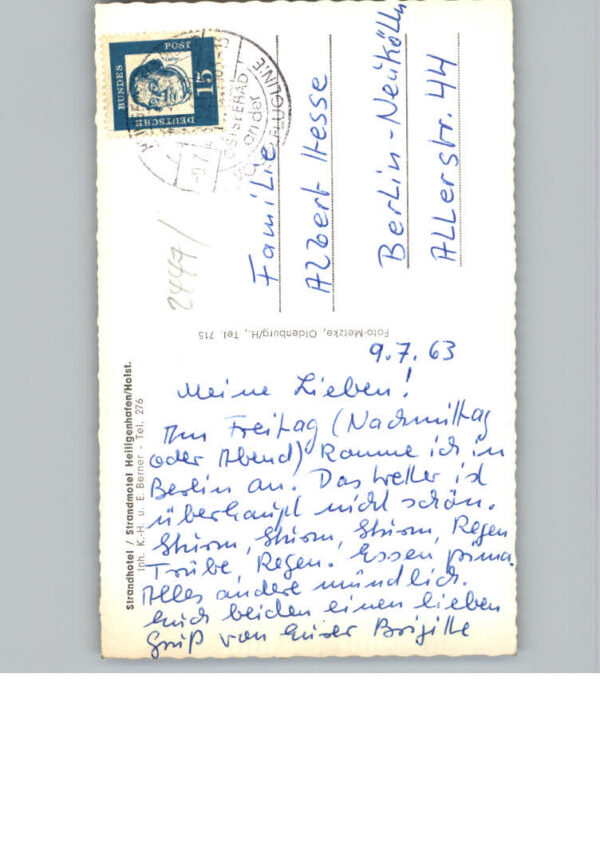 DEUTSCHE
BUNDES
POST
15
OSTSEEBAD
an der
FLUGLINIE
Familie
Albert Hesse
Berlin-Neukölln
Allerstr. 44
2447/
Foto-Metzke, Oldenburg/H., Tel. 715
Strandhotel / Strandmotel Heiligenhafen/Holst.
Inh. K.-H. u. E. Berner - Tel. 276
9.7.63
Meine Lieben!
Am Freitag (Nachmittag
oder Abend) komme ich in
Berlin an. Das Wetter ist
überhaupt nicht schön.
Sturm, Sturm, Sturm, Regen
Trübe, Regen. Essen prima.
Alles andere mündlich.
Euch beiden einen lieben
Gruß von Eurer Brigitte